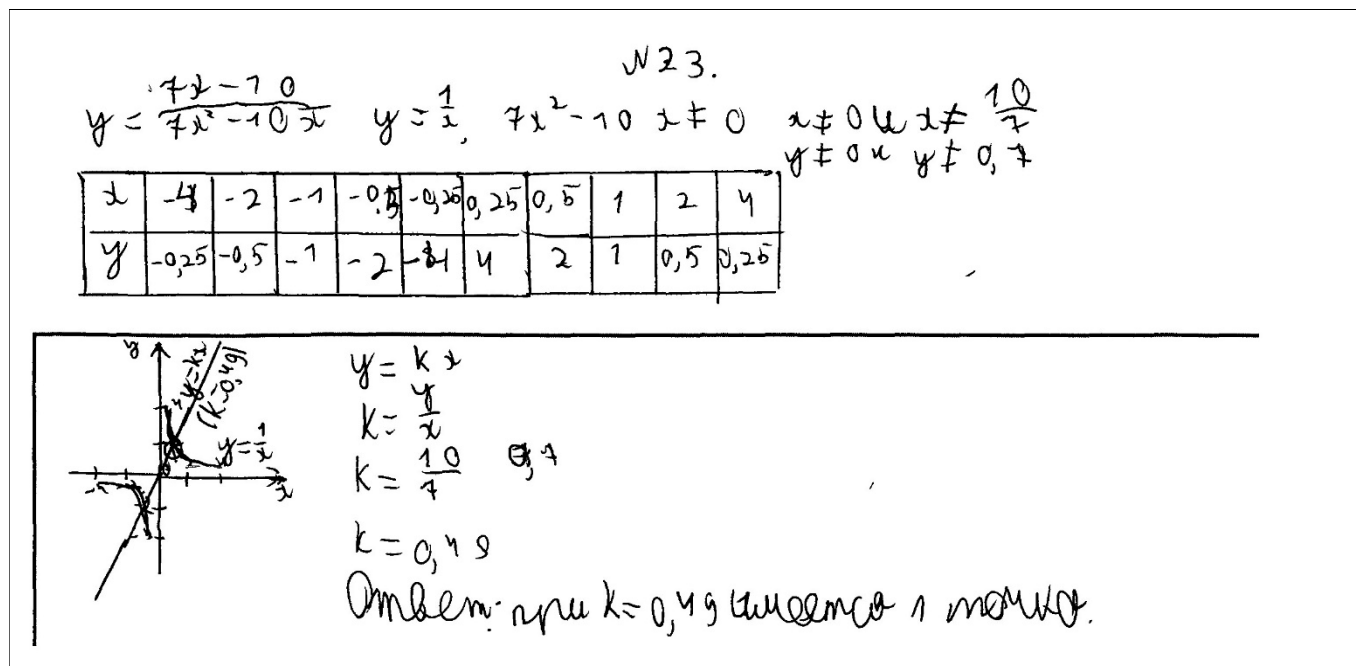 N23.
y = (7x-10)/(7x²-10x) y = 1/x, 7x²-10x ≠ 0 x ≠ 0 и x ≠ 10/7
y ≠ 0 и y ≠ 0,7
x -4 -2 -1 -0,5 -0,25 0,25 0,5 1 2 4
y -0,25 -0,5 -1 -2 -4 4 2 1 0,5 0,25
y
y=kx
(k=0,49)
y=1/x
x
y = kx
k = y/x
k = 10/7 0,7
k = 0,49
Ответ: при k=0,49 имеется 1 точка.